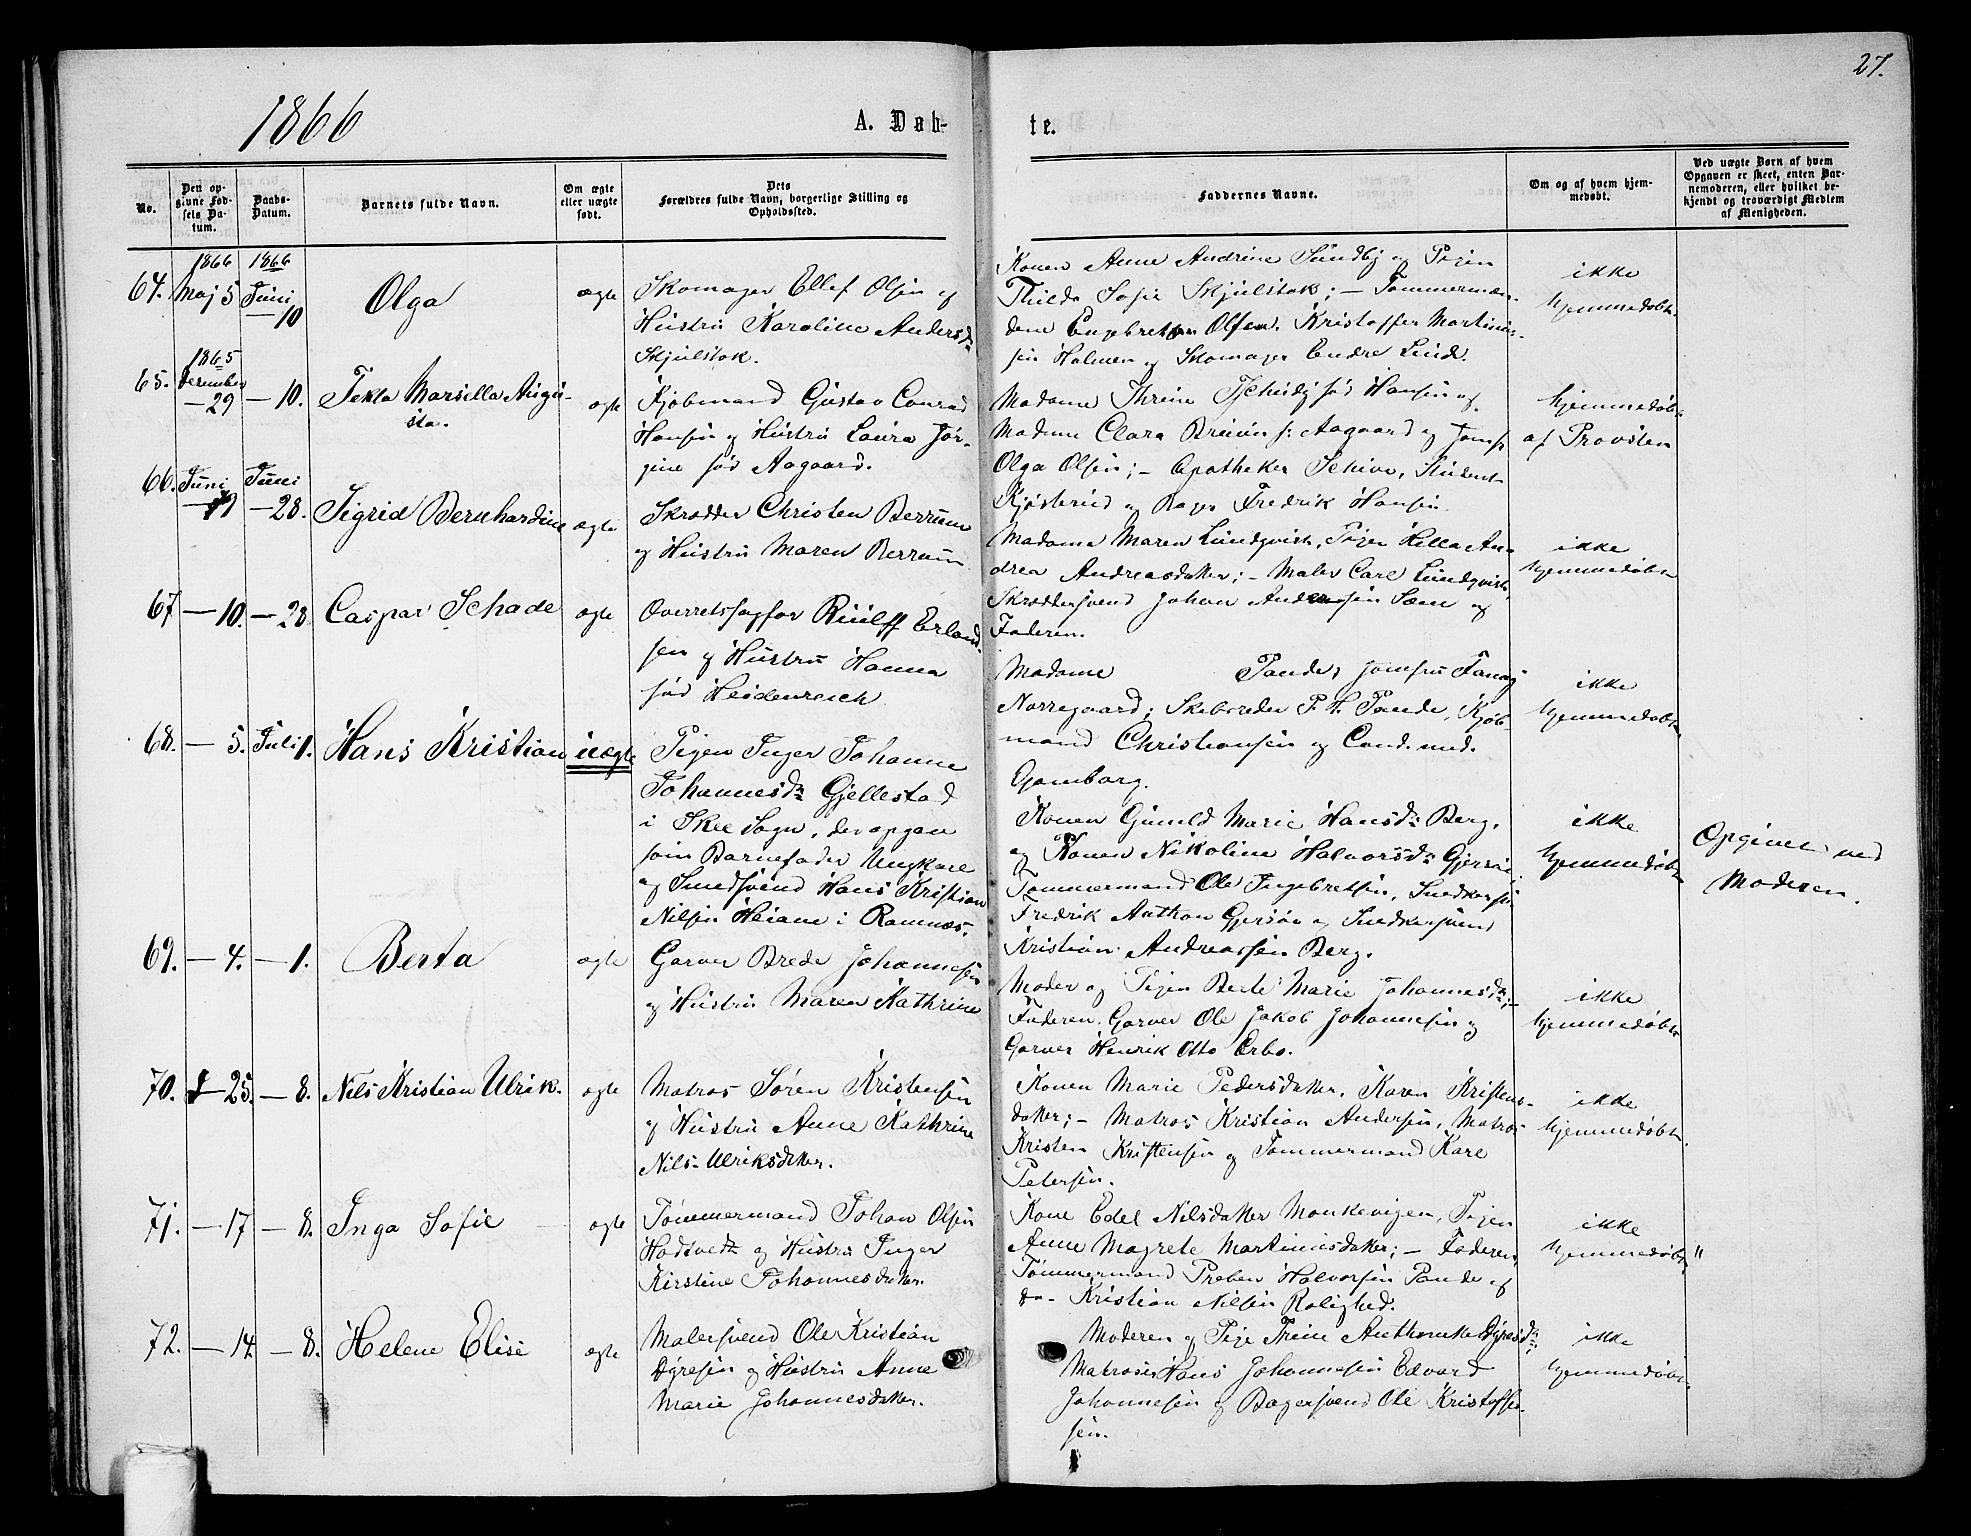 27.
1866
A. Døb-
te.
No.
Den op-
givne Fød-
sels Da-
tum.
Daabs-
Datum.
Barnets fulde Navn.
Om ægte
eller uægte
født.
Dets
Forældres fulde Navn, borgerlige Stilling og
Opholdssted.
Faddernes Navne.
Om og af hvem hjem-
medøbt.
Ved uægte Børn af hvem
Opgaven er skeet, enten Bar-
nemoderen, eller hvilket be-
kjendt og troværdigt Medlem
af Menigheden.
64.
1866
Maj 5
1866
Juni
— 10
Olga
ægte
Skomager Ellef Olsen og
Hustru Karoline Andersdr
Skjulstok.
Konen Anne Andrine Sundby og Pigen
Thilda Sofie Skjulstok; — Tømmermæn-
dene Engebret Olsen, Kristoffer Martini-
sen Holmen og Skomager Endre Lund.
ikke
hjemmedøbt.
65.
1865
December
— 29
— 10.
Tekla Marsilla Augu-
sta.
ægte
Kjøbmand Gustav Conrad
Hansen og Hustru Laura Jør-
gine fød Aagaard.
Madame Thrine fød Hansen og
Madame Clara Bruun f: Aagaard og Jomf:
Olga Olsen; — Apotheker Schive, Student
Kjøsterud og Bager Fredrik Hansen.
hjemmedøbt
af Provsten
66.
Juni
— 19
Juni
— 28.
Sigrid Bernhardine
ægte
Skrædder Christen Berrum
og Hustru Maren Berrum
Madame Maren Lundqvist, Pigen Hella An-
drea Andreasdatter; — Maler Carl Lundqvist,
Skræddersvend Johan Andersen Sæm og
Faderen.
ikke
hjemmedøbt
67
— 10.
— 28
Caspar Schade
ægte
Overretssagfør Ruulff Erland-
sen og Hustru Hanna
fød Heidenreich
Madame Pande, Jomfru Fanny
Nørregaard; Skibsreder P. H. Pande, Kjøb-
mand Christiansen og Cand. med.
Gjemborg.
ikke
hjemmedøbt.
68.
— 5.
Juli 1.
Hans Kristian
uægte
Pigen Inger Johanne
Johannesdr Gjellestad
i Skee Sogn, der opgav
som Barnefader Ungkarl
og Smedsvend Hans Kristian
Nilsen Heiane i Ramnæs.
Konen Gunild Marie Hansdr Berg,
og Konen Nikoline Halvorsdr Gjersøe,
Tømmermand Ole Ingebretsen, Snedkersv:
Fredrik Anthon Gjersøe og Snedkersvend
Kristian Andreassen Berg.
ikke
hjemmedøbt
Opgivet ved
Moderen.
69.
— 4.
— 1.
Berta
ægte
Garver Brede Johannesen
og Hustru Maren Kathrine
Moder og Pigen Berte Marie Johannesdr; —
Faderen, Garver Ole Jakob Johannesen og
Garver Henrik Otto Erbo.
ikke
hjemmedøbt
70.
— 25.
— 8.
Nils Kristian Ulrik.
ægte
Matros Søren Kristensen
og Hustru Anne Kathrine
Nils-Ulriksdatter.
Konen Marie Pedersdatter, Karen Kristens-
datter; — Matros Kristian Andersen, Matros
Kristen Kristensen og Tømmermand Karl
Petersen.
ikke
hjemmedøbt.
71.
— 17
— 8.
Inga Sofie
ægte
Tømmermand Johan Olsen
Hadtvedt og Hustru Inger
Kirstine Johannesdatter.
Kone Edel Nilsdatter Munkevigen, Pigen
Anne Magrete Martinusdatter; — Faderen,
Tømmermand Preben Halvorsen Pande og
do - Kristian Nilsen Rolighed.
ikke
hjemmedøbt
"
72.
— 14
— 8.
Helene Elise
ægte
Malersvend Ole Kristian
Dyresen og Hustru Anne
Marie Johannesdatter.
Moderen og Pige Trine Anthonette Dyresdr;
Matroser Hans Johannesen Edvard
Johannesen og Bagersvend Ole Kristoffer-
sen.
ikke
hjemmedøbt.